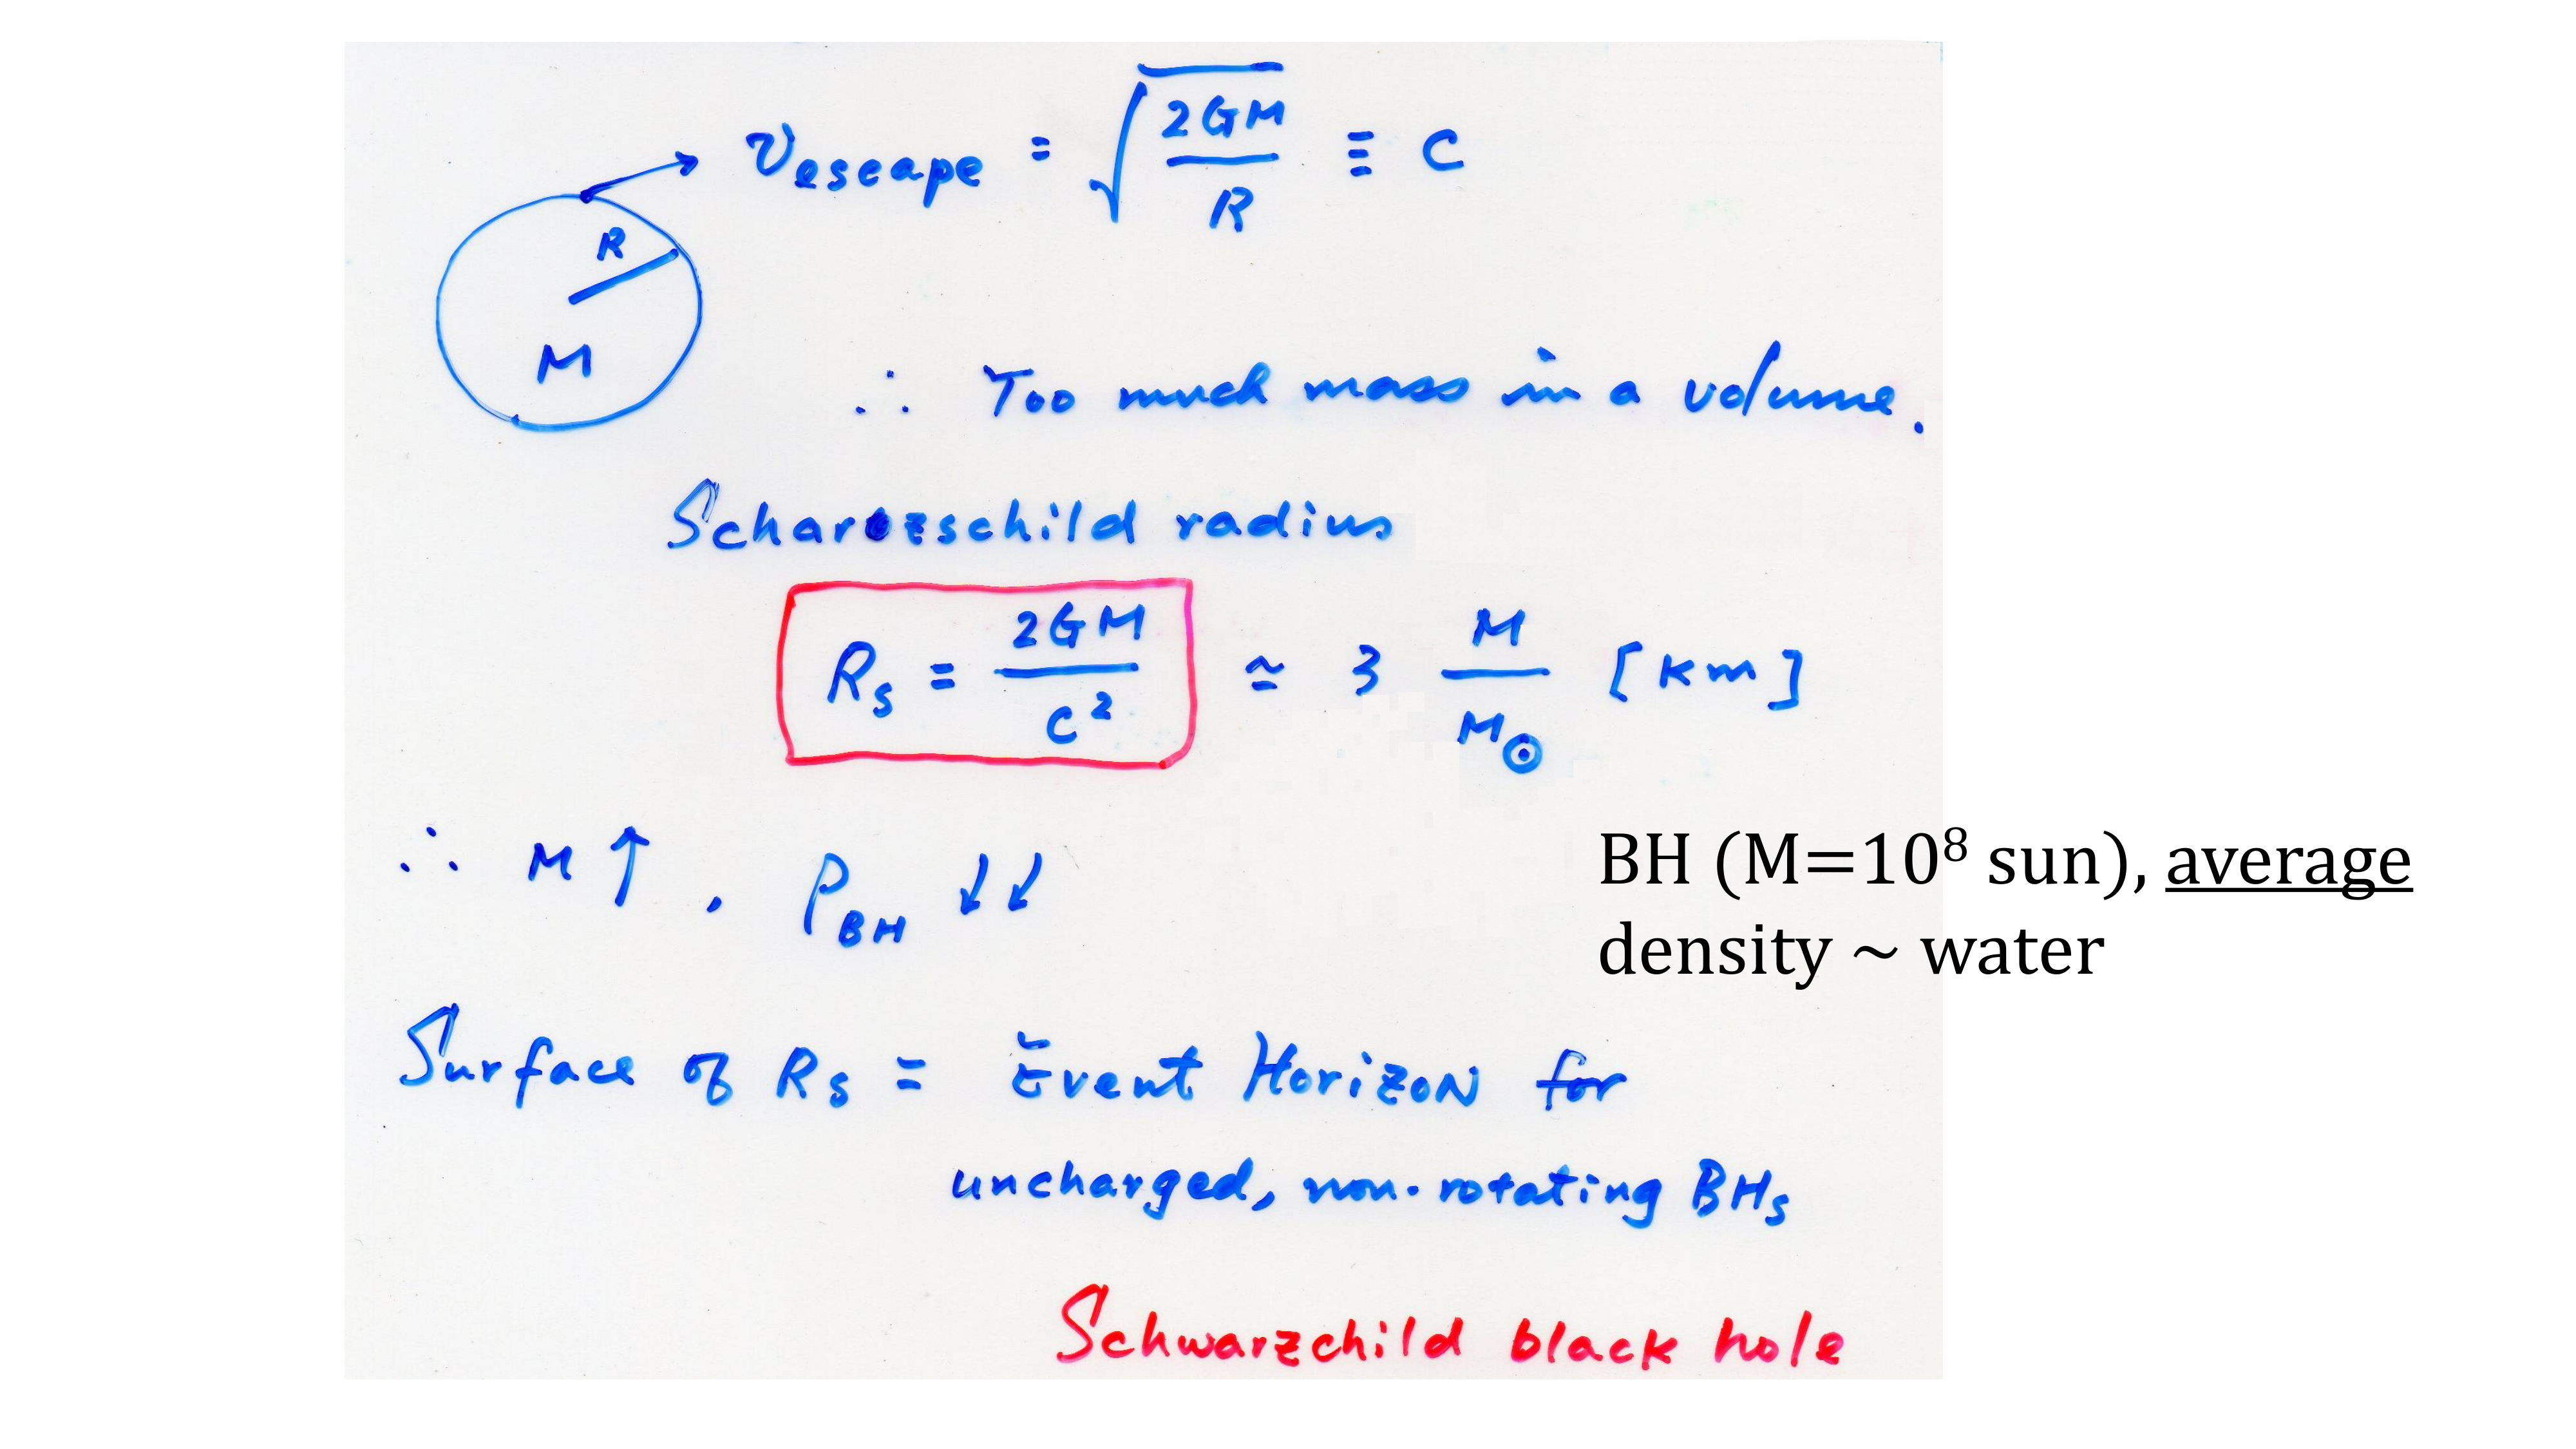 Vescape = √(2GM / R) ≡ C
R
M
∴ Too much mass in a volume.
Scharzschild radius
Rs = 2GM / C² ≃ 3 M / M⊙ [km]
∴ M ↑ , ρBH ↓↓
BH (M=10⁸ sun), average
density ~ water
Surface of Rs = Event Horizon for
uncharged, non-rotating BHs
Schwarzchild black hole